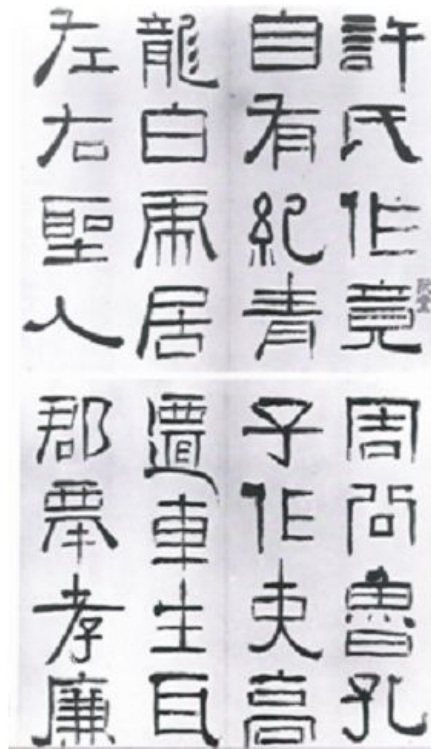 許氏作竟
自有紀青
龍白虎居
左右聖人
阮堂
周公魯孔
子作吏高
遷車生耳
郡舉孝廉